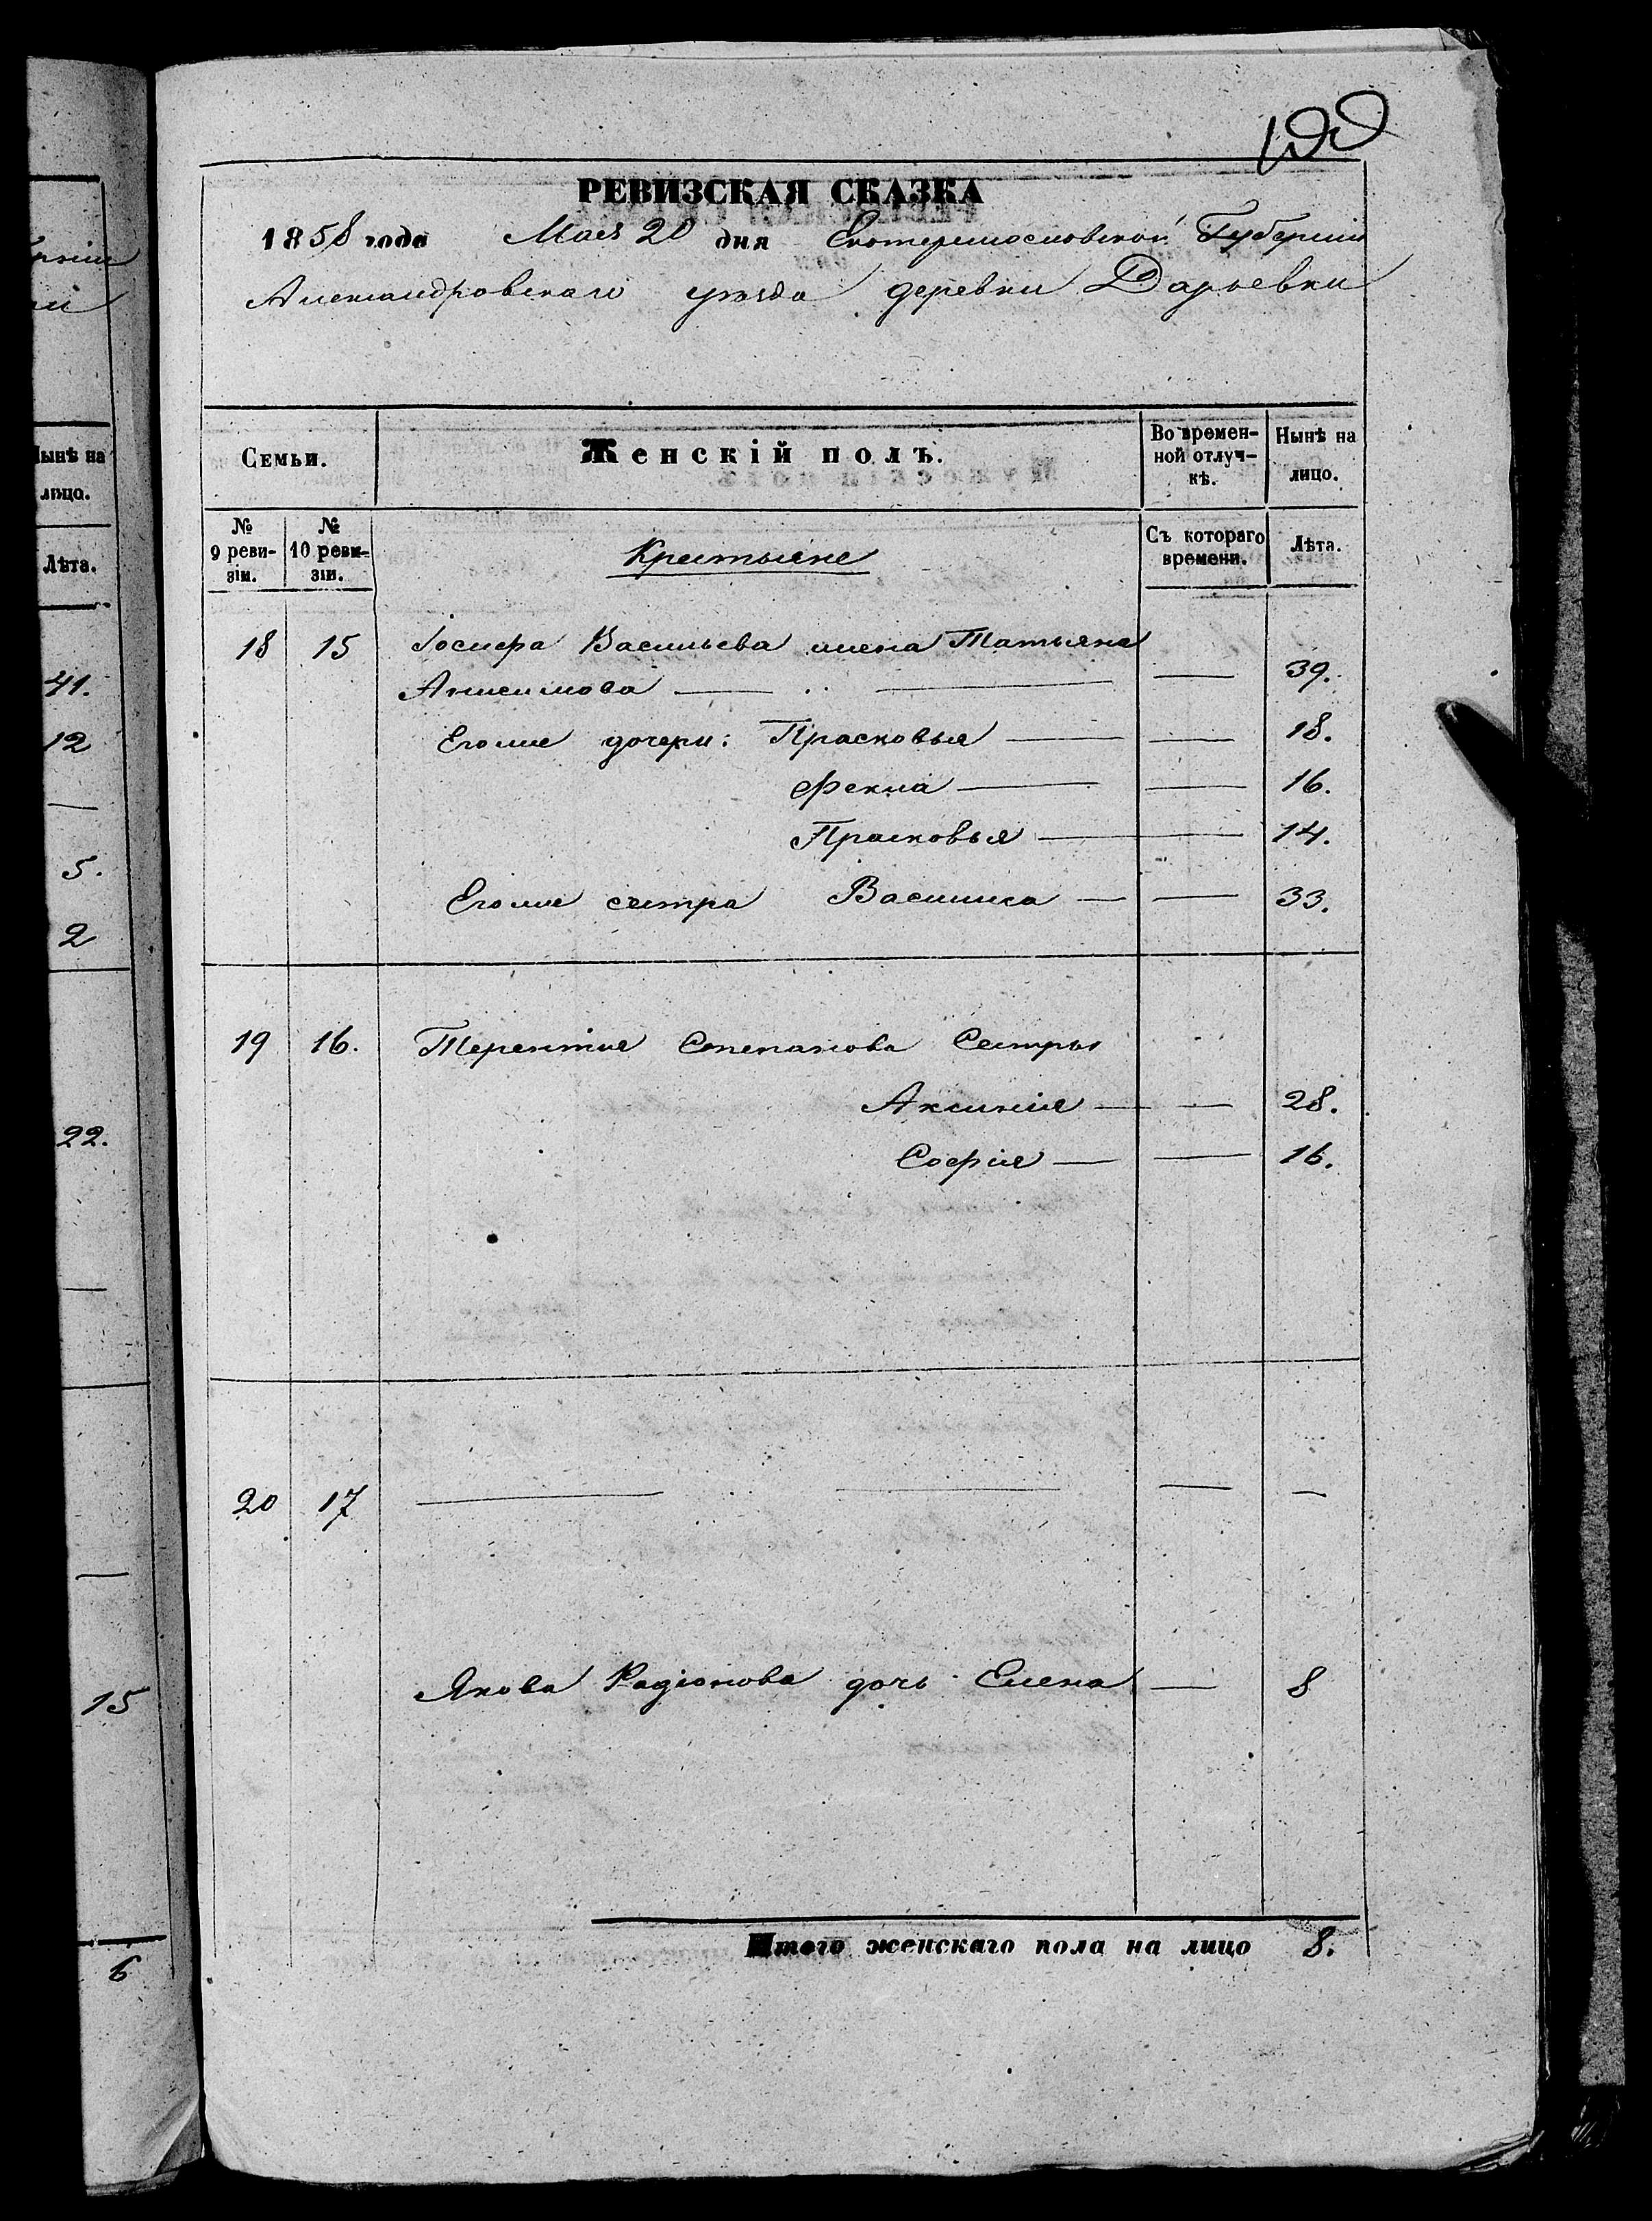 100
РЕВИЗСКАЯ СКАЗКА
1858 года Мая 20 дня Екатеринославской Губерніи
Александровскаго уѣзда деревни Дарьевки
Семьи.
Женскій полъ.
Во времен-
ной отлуч-
кѣ.
Нынѣ на
лицо.
№
9 реви-
зіи.
№
10 реви-
зіи.
Крестьяне
Съ котораго
времени.
Лѣта.
18 15 Іосифа Васильева жена Татьяна
Анисимова — — — 39.
Егоже дочери: Прасковья — — 18.
Фекла — — 16.
Прасковья — — 14.
Егоже сестра Василиса — — 33.
19 16. Терентія Степанова Сестры
Аксинія — — 28.
Софія — — 16.
20 17 — — — —
Якова Радіонова дочь Елена — 8
Итого женскаго пола на лицо 8.
Нынѣ на
лицо.
Лѣта.
41.
12
—
5.
2
22.
—
—
15
6